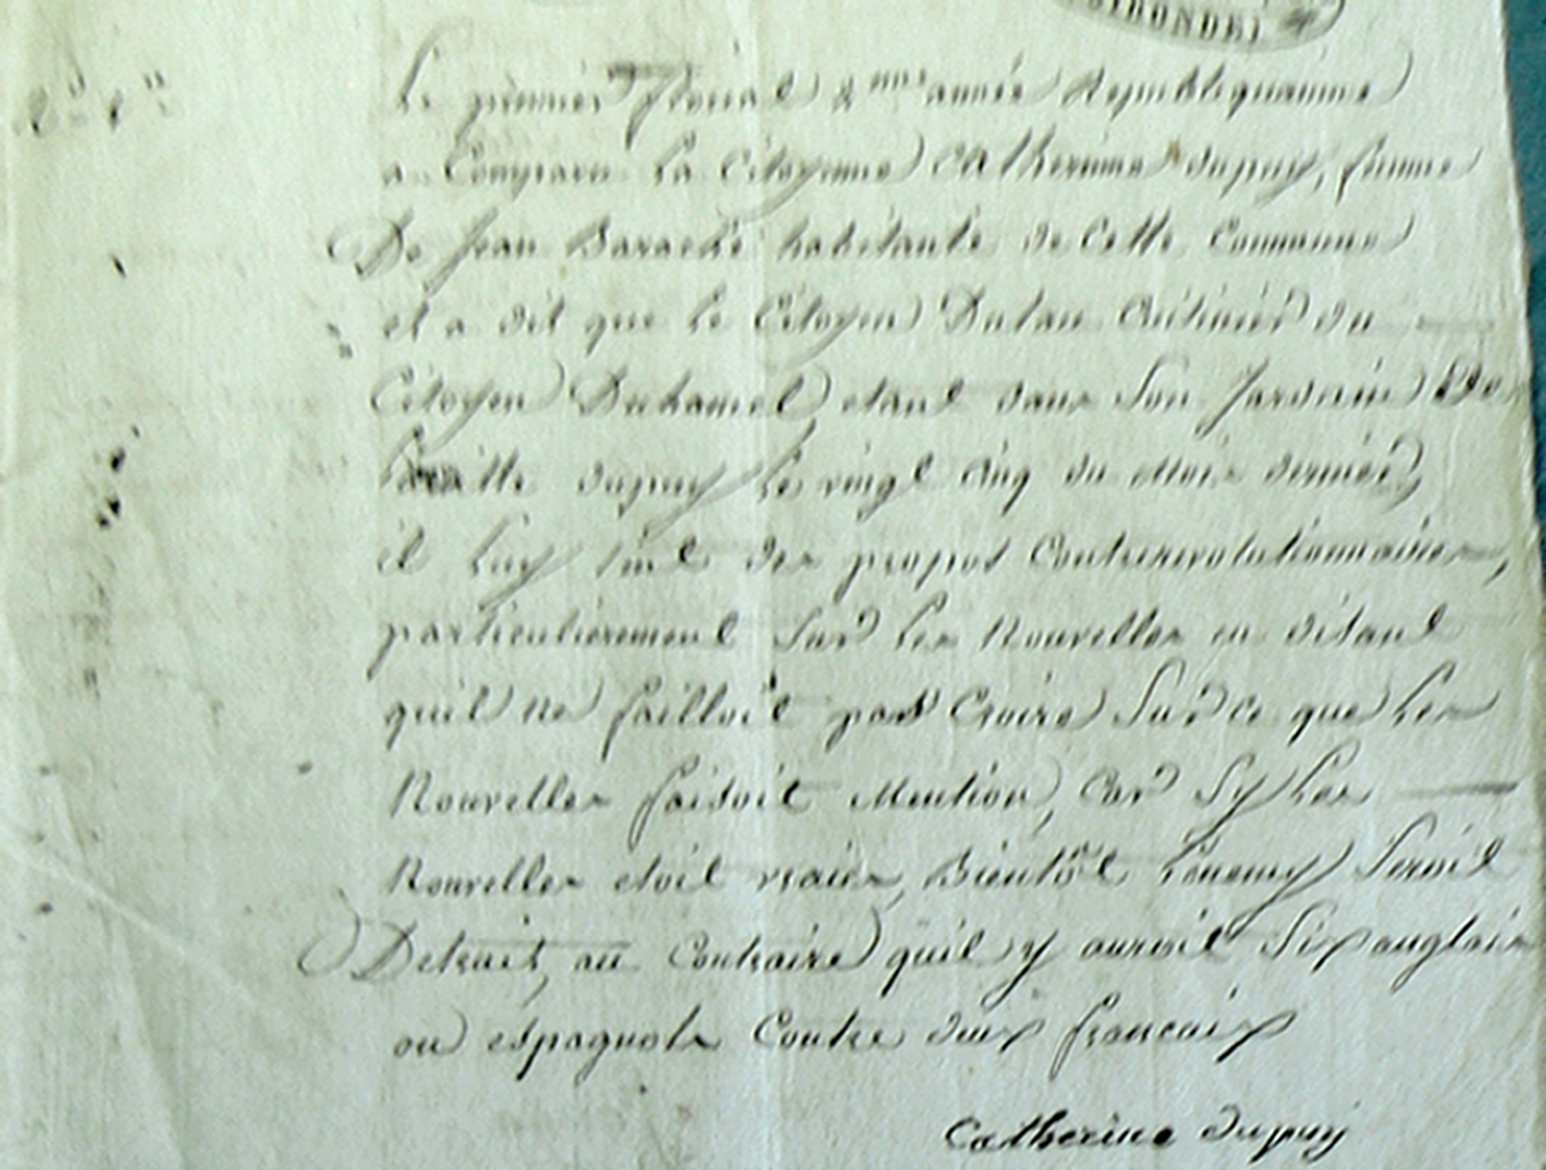 GIRONDE
Le premier floréal 2me année Republiquainne
a Comparu la Citoyenne Catherinne dupuy, famme
De jean Barache habitante de Cette Commune
et a dit que le Citoyen Dutau Cuisinier du
Citoyen Duhamel etant dans Son Jardain De
laditte dupuy le vingt cinq du Mois dernier,
il luy tint des propos Contrerevolutionnaires,
particulierement Sur les Nouvelles en disant
quil ne failloit pas Croire Sur ce que les
Nouvelles faisoit Mention, Car Sy les
Nouvelles etoit vraies, Bientôt l'énemy Seroit
Detruit, au Contraire quil y auroit Six anglais
ou espagnols Contre deux francaix
Catherine dupuy